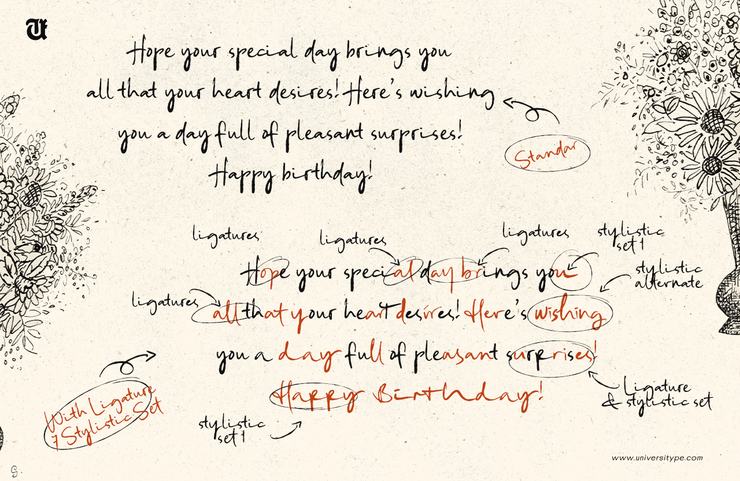 U
Hope your special day brings you
all that your heart desires! Here's wishing
you a day full of pleasant surprises!
Happy birthday!
Standar
ligatures
ligatures
ligatures
stylistic
set 1
Hope your special day brings you
stylistic
alternate
ligatures
all that your heart desires! Here's wishing
you a day full of pleasant surprises!
Ligature
& stylistic set
With Ligature
7 Stylistic Set
Happy Birthday!
stylistic
set 1
www.universitype.com